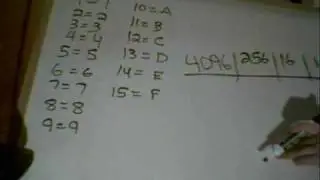 1 = 1
2 = 2
3 = 3
4 = 4
5 = 5
6 = 6
7 = 7
8 = 8
9 = 9
10 = A
11 = B
12 = C
13 = D
14 = E
15 = F
4096 | 256 | 16 |